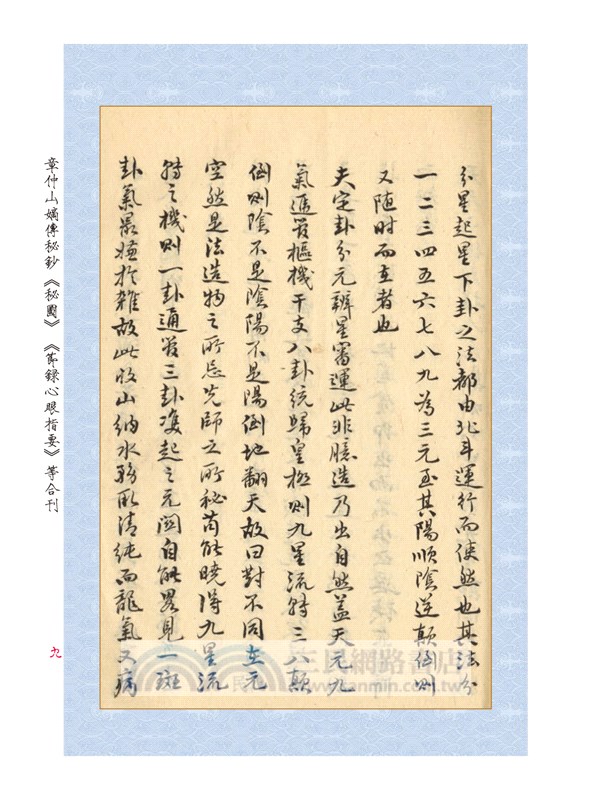 分星起星下卦之法都由北斗運行而使然也其法分
一二三四五六七八九為三元至其陽順陰逆顛倒則
又隨時而在者也
夫定卦分元辨星審運此非臆造乃出自然蓋天元九
氣運審樞機干支八卦統歸皇極則九星流轉三八顛
倒則陰不是陰陽不是陽倒地翻天故曰對不同在元
空然是法造物之所忌先師之所秘苟能曉得九星流
轉之機則一卦通審三卦及起之元關自能畧見一斑
卦氣最嫌於雜故此收山納水務取清純而龍氣又病
章仲山嫡傳秘鈔《秘圖》《節錄心眼指要》等合刊
九
三民網路書店
www.sanmin.com.tw